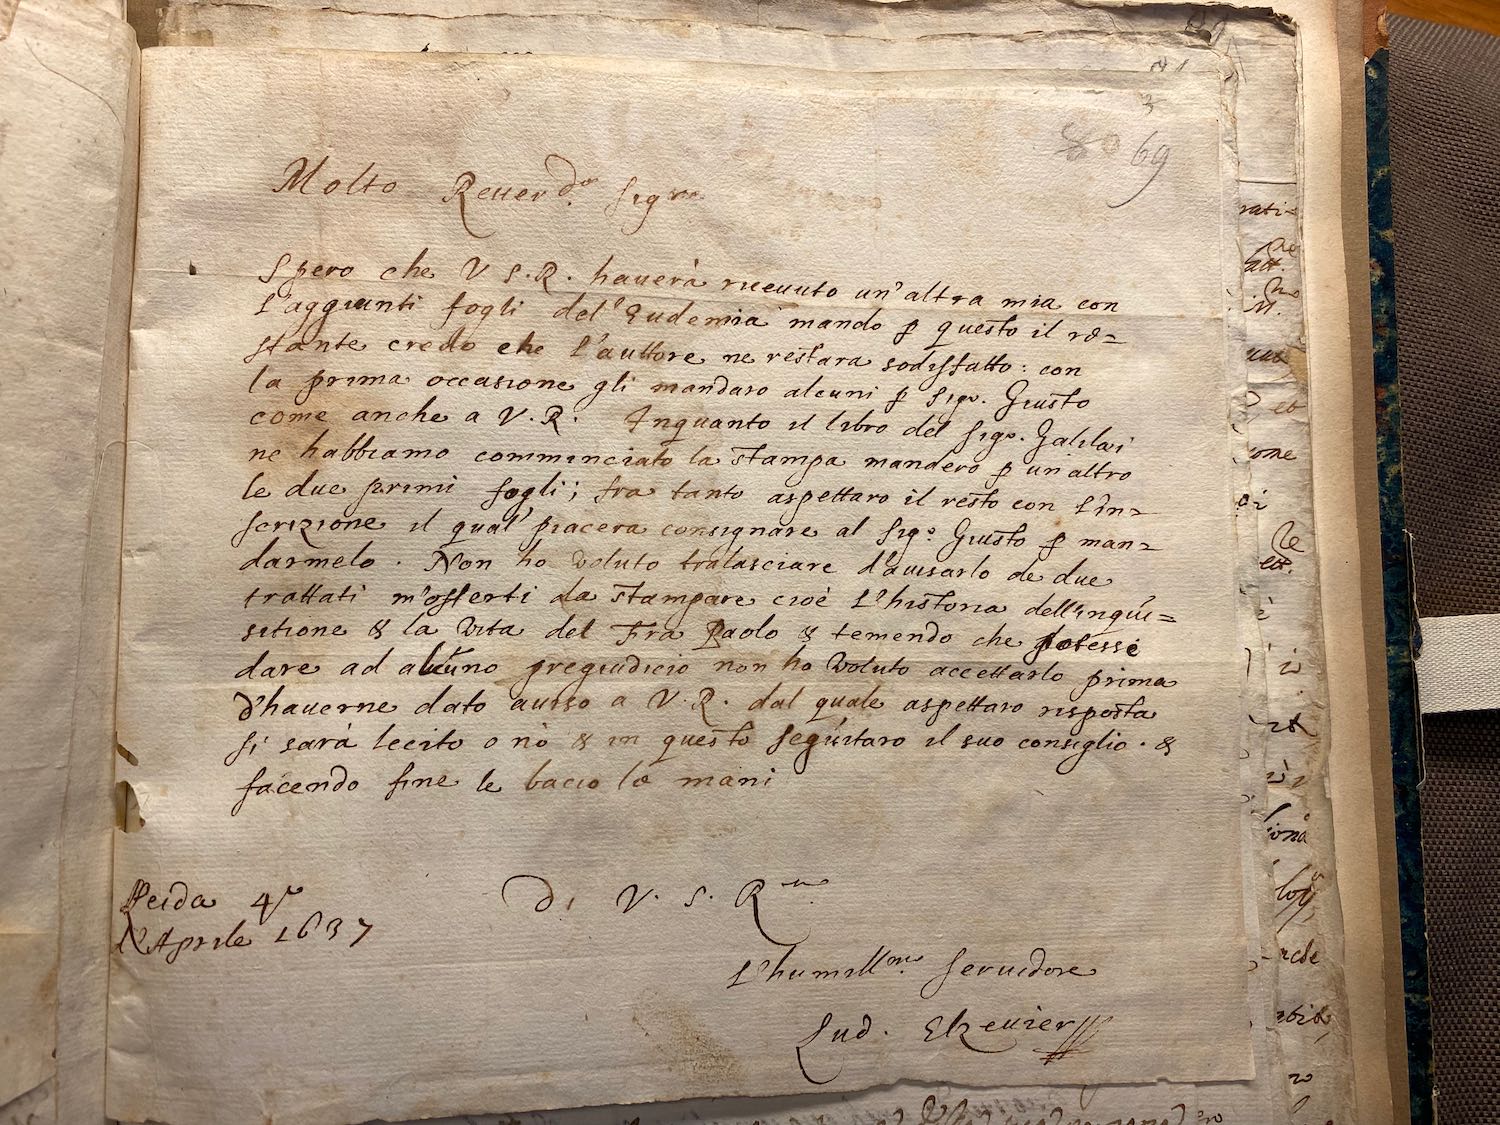 69
Molto Reuerdo. Sigre.
Spero che V S.R. hauerà riceuuto un'altra mia con
l'aggiunti fogli del'Eudemia mando p questo il re=
stante credo che l'auttore ne restara sodisfatto: con
la prima occasione gli mandaro alcuni p Sigr. Giusto
come anche a V.R. Inquanto il libro del Sigr. Galilei
ne habbiamo comminciato la stampa mandero p un altro
le due primi fogli; fra tanto aspettaro il resto con l'in=
scrizione il qual' piacera consignare al Sigr. Giusto p man=
darmelo. Non ho voluto tralasciare d'auisarlo de due
trattati m'offerti da stampare cioè l'historia dell'inqui=
sitione & la vita del Fra Paolo & temendo che potesse
dare ad alcuno pregiudicio non ho voluto accettarlo prima
d'hauerne dato auiso a V.R. dal quale aspettaro risposta
si sarà lecito o nò & in questo seguitaro il suo consiglio. &
facendo fine le bacio le mani
Leida 4
Aprile 1637
Di V. S. R
L'humillmo. seruidore
Lud. Elzeuier